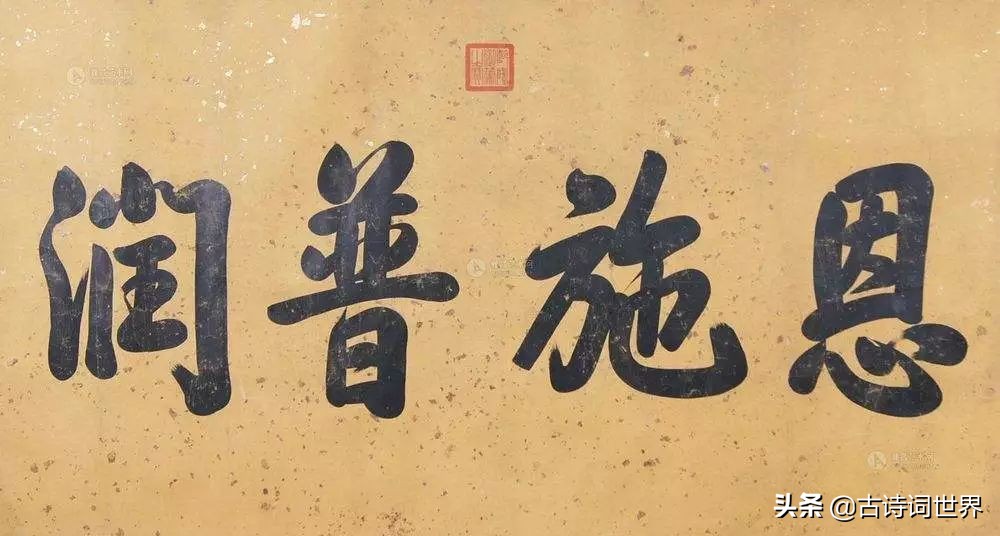 恩施普润
头条 @古诗词世界